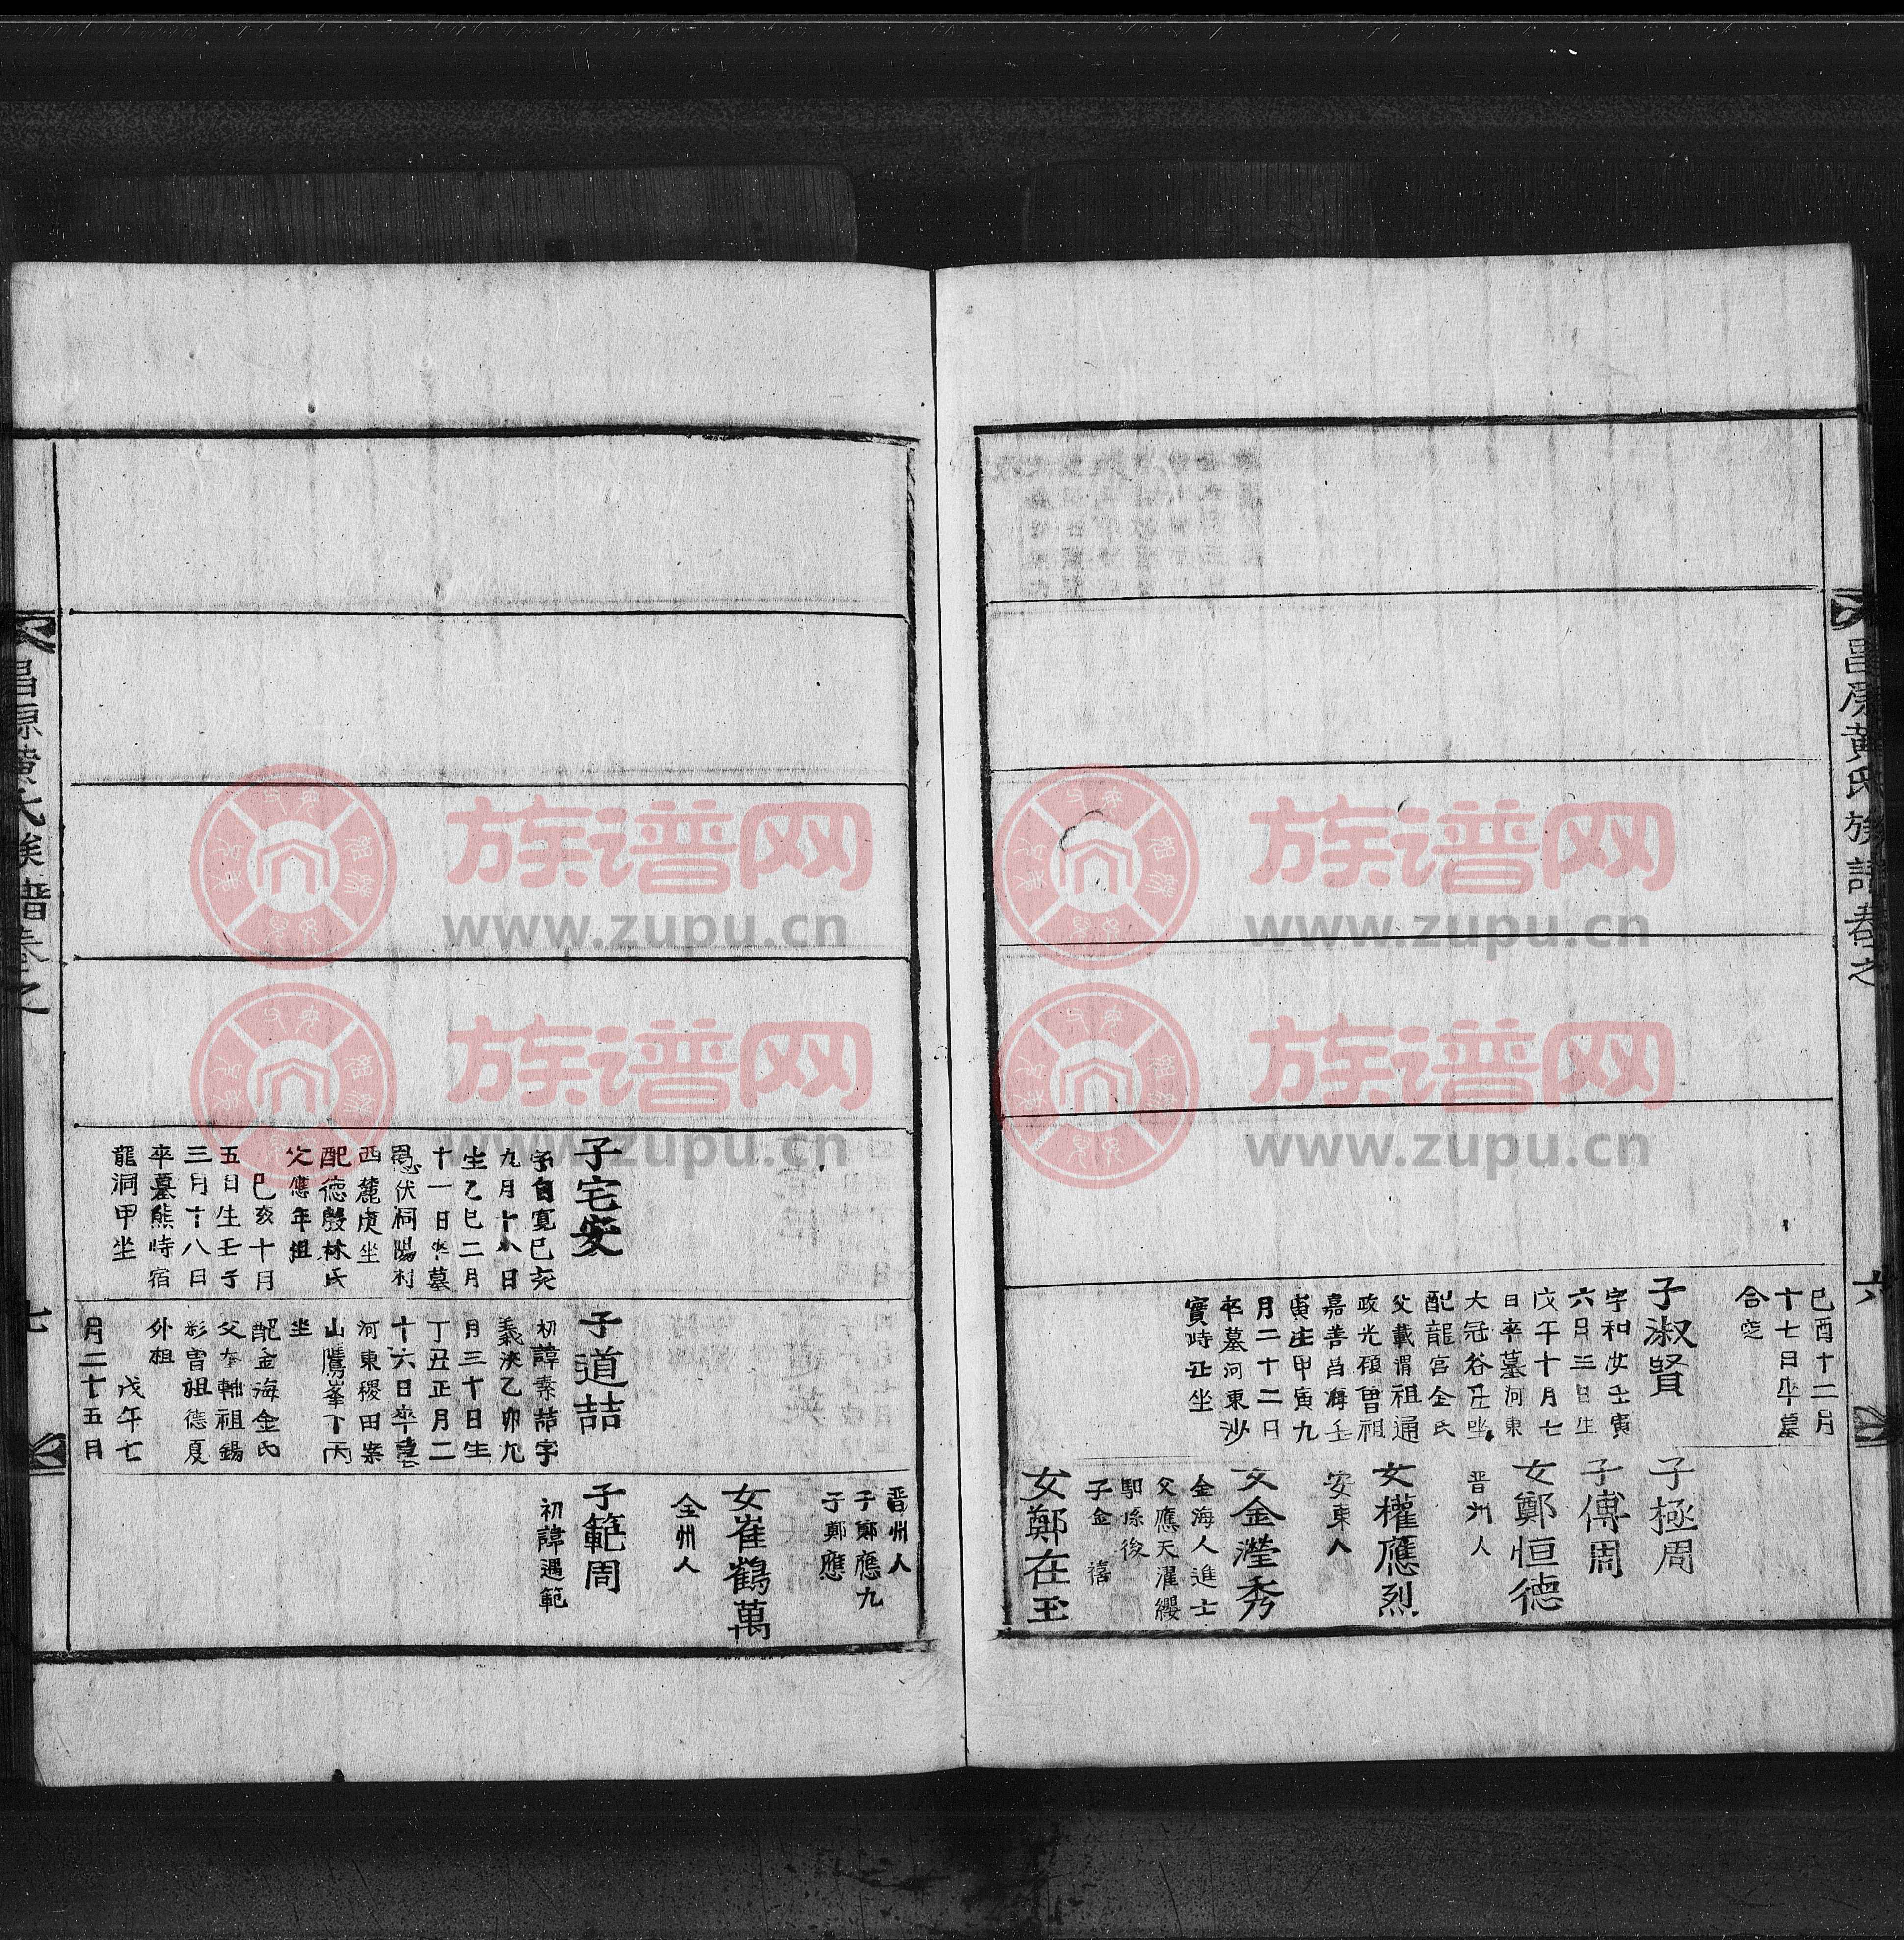 昌原黄氏族譜卷之
六
己酉十二月
十七日卒墓
合窆
子淑賢
字和汝壬寅
六月三日生
戊午十月七
日卒墓河東
大冠谷丑坐
配龍宮金氏
父載渭祖通
政光碩曽祖
嘉善昌海壬
寅生甲寅九
月二十二日
卒墓河東沙
實時丑坐
子極周
子傅周
女鄭恒德
晋州人
女權應烈
安東人
女金瀅秀
金海人進士
父應天濯纓
馹孫後
子金 禧
女鄭在玉
晋州人
子鄭應九
子鄭應
女崔鶴萬
全州人
子範周
初諱遇範
子宅安
字自寬己亥
九月十八日
生乙巳二月
十一日卒墓
伏祠陽村
西麓庚坐
配德殷林氏
父應年祖
己亥十月
五日生壬子
三月十八日
卒墓熊峙宿
龍洞甲坐
子道喆
初諱素喆字
義浹乙卯九
月三十日生
丁丑正月二
十六日卒墓
河東稷田案
山鷹峯下丙
坐
配金海金氏
父奎軸祖錫
彩曽祖德夏
外祖
戊午七
月二十五月
昌原黄氏族譜卷之
七
族谱网
www.zupu.cn
族谱网
www.zupu.cn
族谱网
www.zupu.cn
族谱网
www.zupu.cn